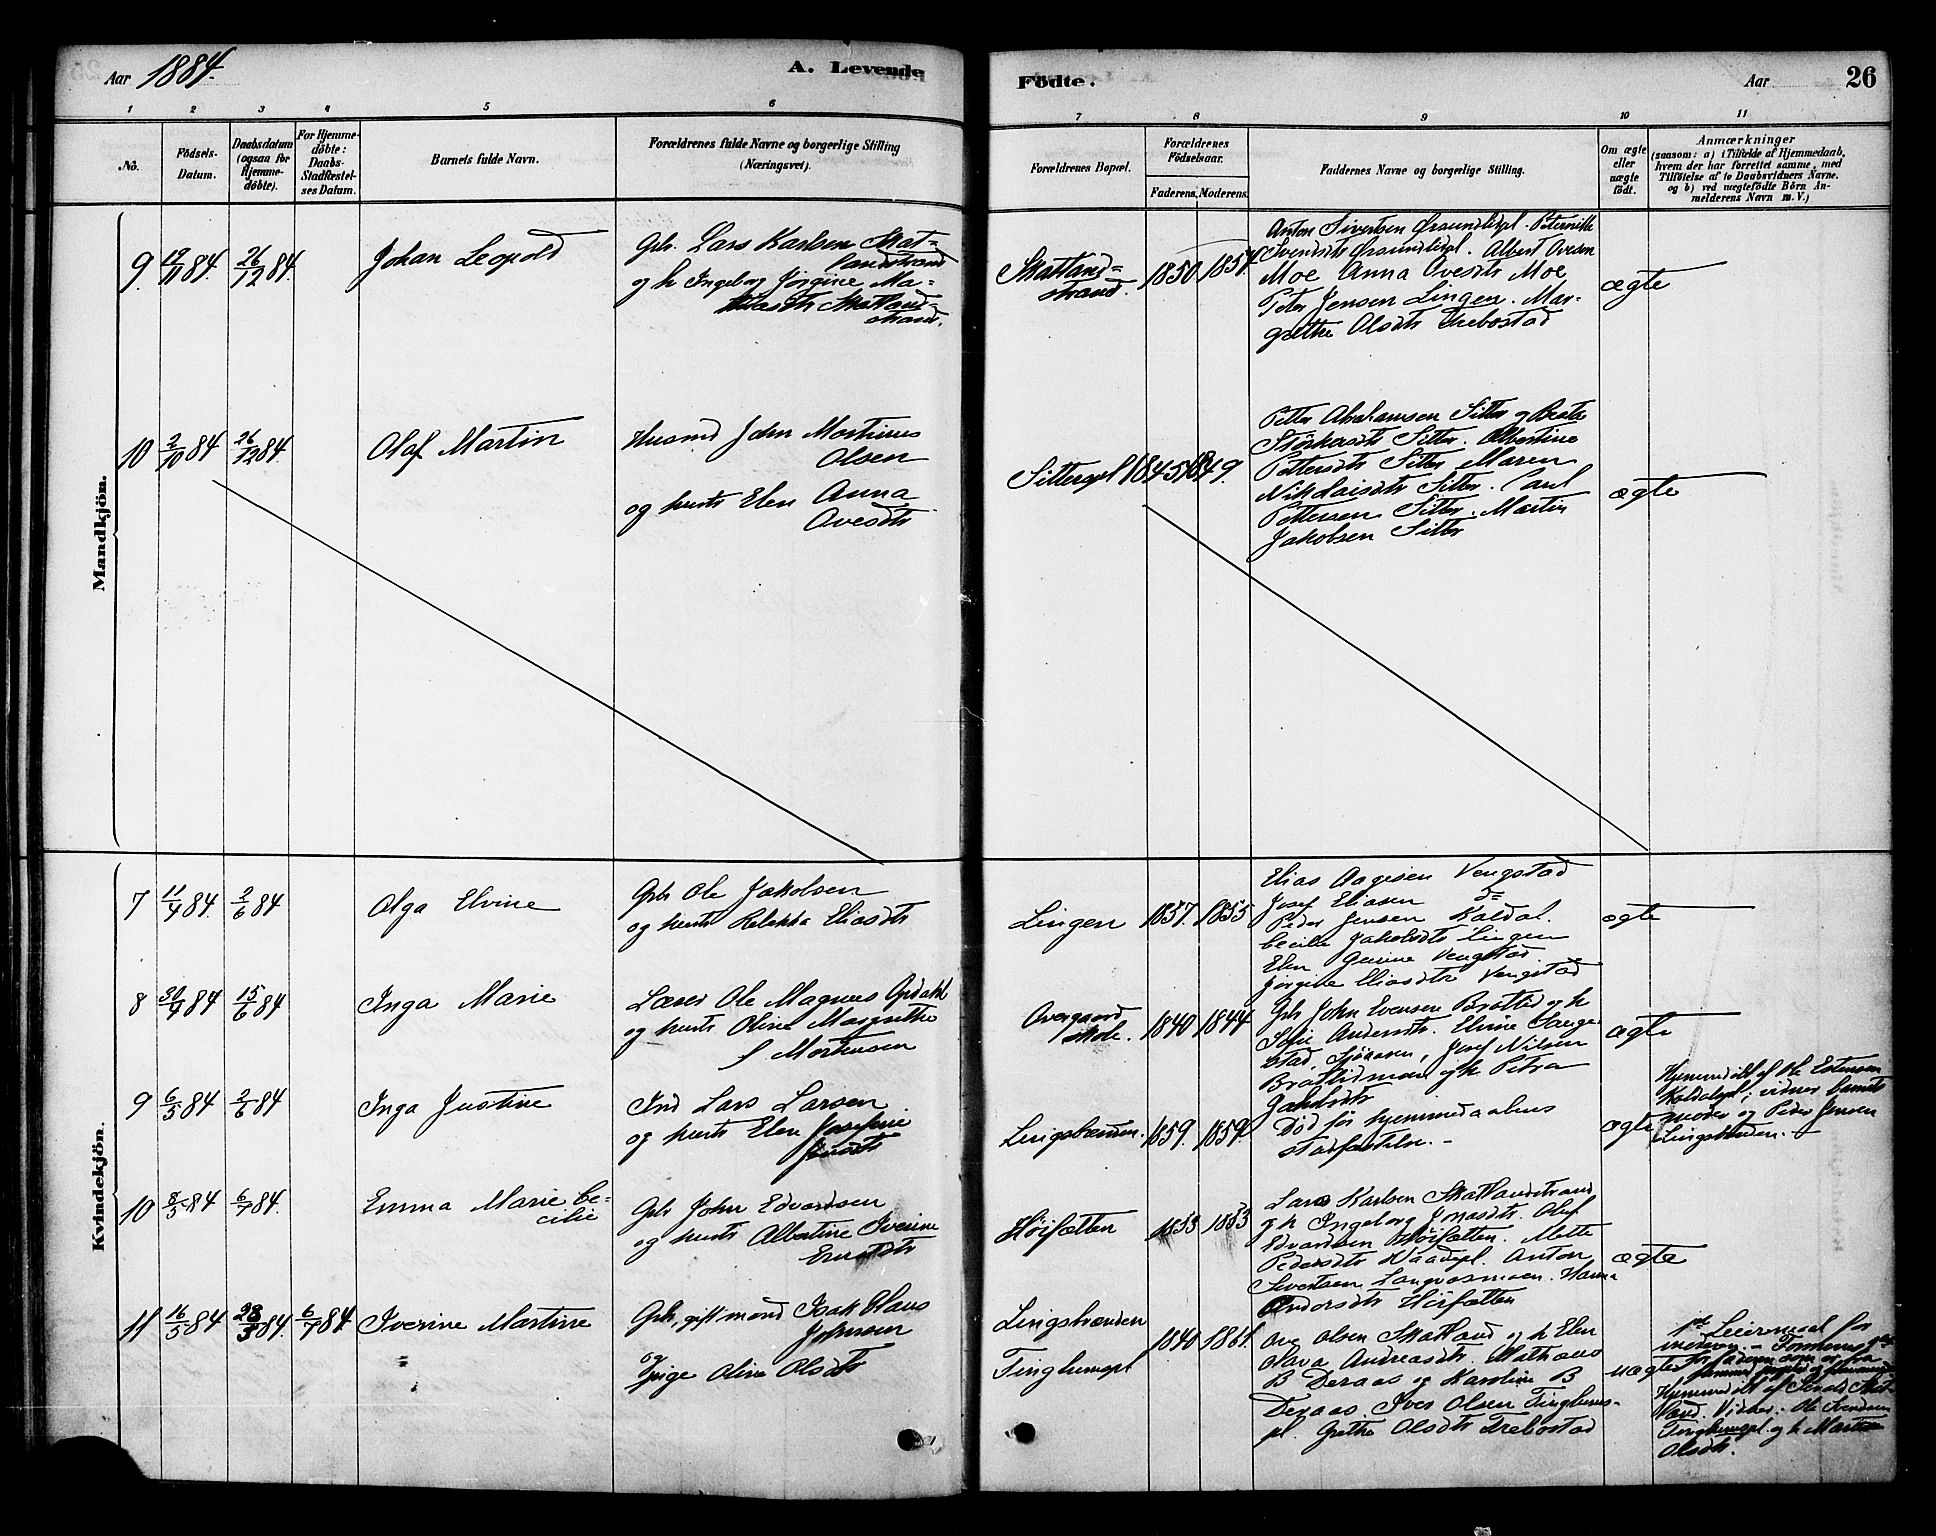 Aar 1884.
A. Levende
Födte.
Aar
26
1 2 3 4 5 6 7 8 9 10 11
No.
Födsels-
Datum.
Daabsdatum
(ogsaa for
Hjemme-
döbte).
For Hjemme-
döbte:
Daabs-
Stadfæstel-
ses Datum.
Barnets fulde Navn.
Forældrenes fulde Navne og borgerlige Stilling
(Næringsvei).
Forældrenes Bopæl.
Forældrenes
Födselsaar.
Faderens. Moderens.
Faddernes Navne og borgerlige Stilling.
Om ægte
eller
uægte
födt.
Anmærkninger
(saasom: a) i Tilfælde af Hjemmedaab,
hvem der har forrettet samme, med
Tilföielse af to Daabsvidners Navne,
og b) ved uægtefödte Börn An-
melderens Navn m. V.)
Mandkjön.
9. 19/11 84. 26/12 84.
Johan Leopold
Gbr. Lars Karlsen Skat-
landstrand
og h Ingeborg Jørgine Ma-
Skatland-
strand.
Skatland-
strand.
1850. 1857.
Anton Sivertsen
Albert Ovesen
Moe Anna Ovesdtr Moe
Peter Jensen Lingen. Mar-
grethe Olsdtr Trebostad
ægte
10 2/10 84 26/12 84.
Olaf Martin
Husmd John Mortinus
Olsen
og hustr Elen Anna
Ovesdtr
Sitterspl
1845. 1849.
Petter Abrahamsen Sitter og Beate
Størkersdtr Sitter. Albertine
Pettersdtr Sitter Maren
Nikolaisdtr Sitter. Paul
Pettersen Sitter. Martin
Jakobsen Sitter
ægte
Kvindekjön.
7 11/4 84. 2/6 84
Olga Elvine
Gbr Ole Jakobsen
og hustr Rebekka Eliasdtr
Lingen
1857. 1855
Elias Aagesen Vengstad
Josef Eliasen do
Peder Jensen Kaldal.
Cecilie Jakobsdtr Lingen
Elen Gurine Vengstad
Jørgine Eliasdtr Vengstad
ægte
8 30/4 84 15/6 84
Inga Marie
Lærer Ole Magnus Opdahl
og hustr Oline Margrethe
f Mortensen
Overgaard
skole.
1840 1844
Gbr John Evensen Brattlid og h
Sofie Andersdtr. Elvine
Josef Nilsen
og h. Petra
Jakobsdtr
ægte
9 6/5 84 2/6 84
Inga Justine
Ind Lars Larsen
og hustr Elen Josefine
Lingsbænden.
1859. 1859.
Død før hjemmedaabens
stadfæstelse. -
ægte
Hjemmedøbt af Ole Estensen
Kaldalspl; vidner barnets
moder og Peder Jensen
Lingsbænden.
10 8/5 84 6/7 84.
Emma Marie Ce-
cilie
Gbr John Edvardsen
og hustr Albertine Iverine
Høifætten
1853 1853
Lars Karlsen Skatlandstrand
og h Ingeborg Jonasdtr. Oluf
Edvardsen Høifætten. Mette
Pedersdtr Anton
Sivertsen Langvasmoen. Hanna
Andersdtr Høifætten
ægte
11 16/5 84 28/5 84. 6/7 84.
Iverine Martine
Gbr, gift mand Isak Claus
Johnsen
og
Pige Oline Olsdtr
Lingsbænden
Tinghaugpl
1840 1861.
Ove Olsen Skatland og h Elen
Olava Andreasdtr. Mathæus
B Deraas og Karoline B
Deraas. Iver Olsen Tinghaug-
pl. Grethe Olsdtr Trebostad
uægte
1ste Leiermaal for
Hjemmedøbt af
land. Vidner: Ole Svendsen
Tinghaugpl. og h Martha
Olsdtr.